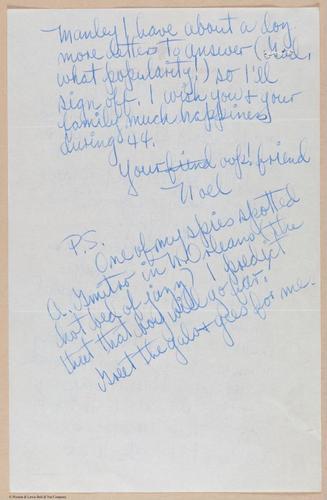 Manley I have about a doz
more letters to answer (
what popularity!) so I'll
sign off. I wish you & your
family much happiness
during 44.
Your fiend oops! friend
Noel
P.S.
One of my spies spotted
A. Gmitro in N. Orleans (the
hot bed of jazz) I predict
that that boy will go far.
Greet the gals & guys for me.